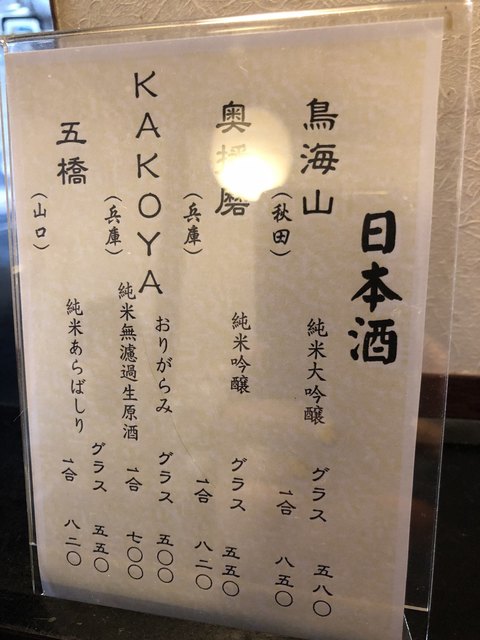 日本酒
鳥海山
(秋田)
純米大吟醸
グラス 五八〇
一合 八五〇
奥播磨
(兵庫)
純米吟醸
グラス 五五〇
一合 八二〇
KAKOYA
(兵庫)
おりがらみ
純米無濾過生原酒
グラス 五〇〇
一合 七〇〇
五橋
(山口)
純米あらばしり
グラス 五五〇
一合 八二〇